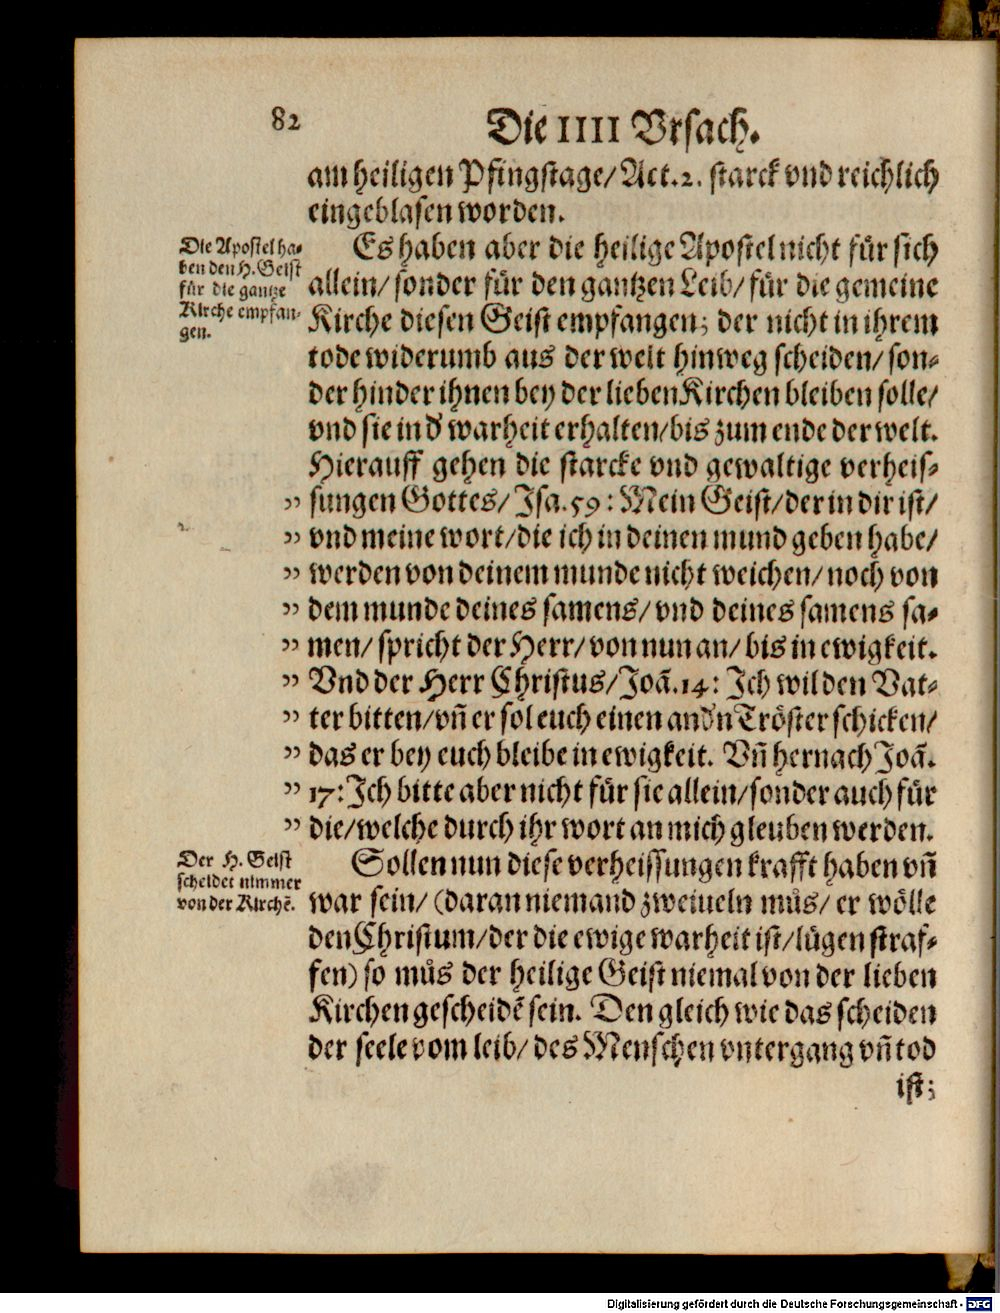 82
Die IIII Vrsach.
am heiligen Pfingstage/ Act. 2. starck vnd reichlich
eingeblasen worden.
Die Apostel ha-
ben den H. Geist
für die gantze
Kirche empfan-
gen.
Es haben aber die heilige Apostel nicht für sich
allein/ sonder für den gantzen Leib/ für die gemeine
Kirche diesen Geist empfangen; der nicht in ihrem
tode widerumb aus der welt hinweg scheiden/ son-
der hinder ihnen bey der lieben Kirchen bleiben solle/
vnd sie in d' warheit erhalten/ bis zum ende der welt.
Hierauff gehen die starcke vnd gewaltige verheis-
„ sungen Gottes/ Isa. 59: Mein Geist/ der in dir ist/
„ vnd meine wort/ die ich in deinen mund geben habe/
„ werden von deinem munde nicht weichen/ noch von
„ dem munde deines samens/ vnd deines samens sa-
„ men/ spricht der Herr/ von nun an/ bis in ewigkeit.
„ Vnd der Herr Christus/ Joã. 14: Ich wil den Vat-
„ ter bitten/ vñ er sol euch einen and'n Tröster schicken/
„ das er bey euch bleibe in ewigkeit. Vñ hernach Joã.
„ 17: Ich bitte aber nicht für sie allein/ sonder auch für
„ die/ welche durch ihr wort an mich gleuben werden.
Der H. Geist
scheidet nimmer
von der Kirchẽ.
Sollen nun diese verheissungen krafft haben vñ
war sein/ (daran niemand zweiueln můs/ er wölle
den Christum/ der die ewige warheit ist/ lügen straf-
fen) so můs der heilige Geist niemal von der lieben
Kirchen gescheidẽ sein. Den gleich wie das scheiden
der seele vom leib/ des Menschen vntergang vñ tod
ist;
Digitalisierung gefördert durch die Deutsche Forschungsgemeinschaft - DFG